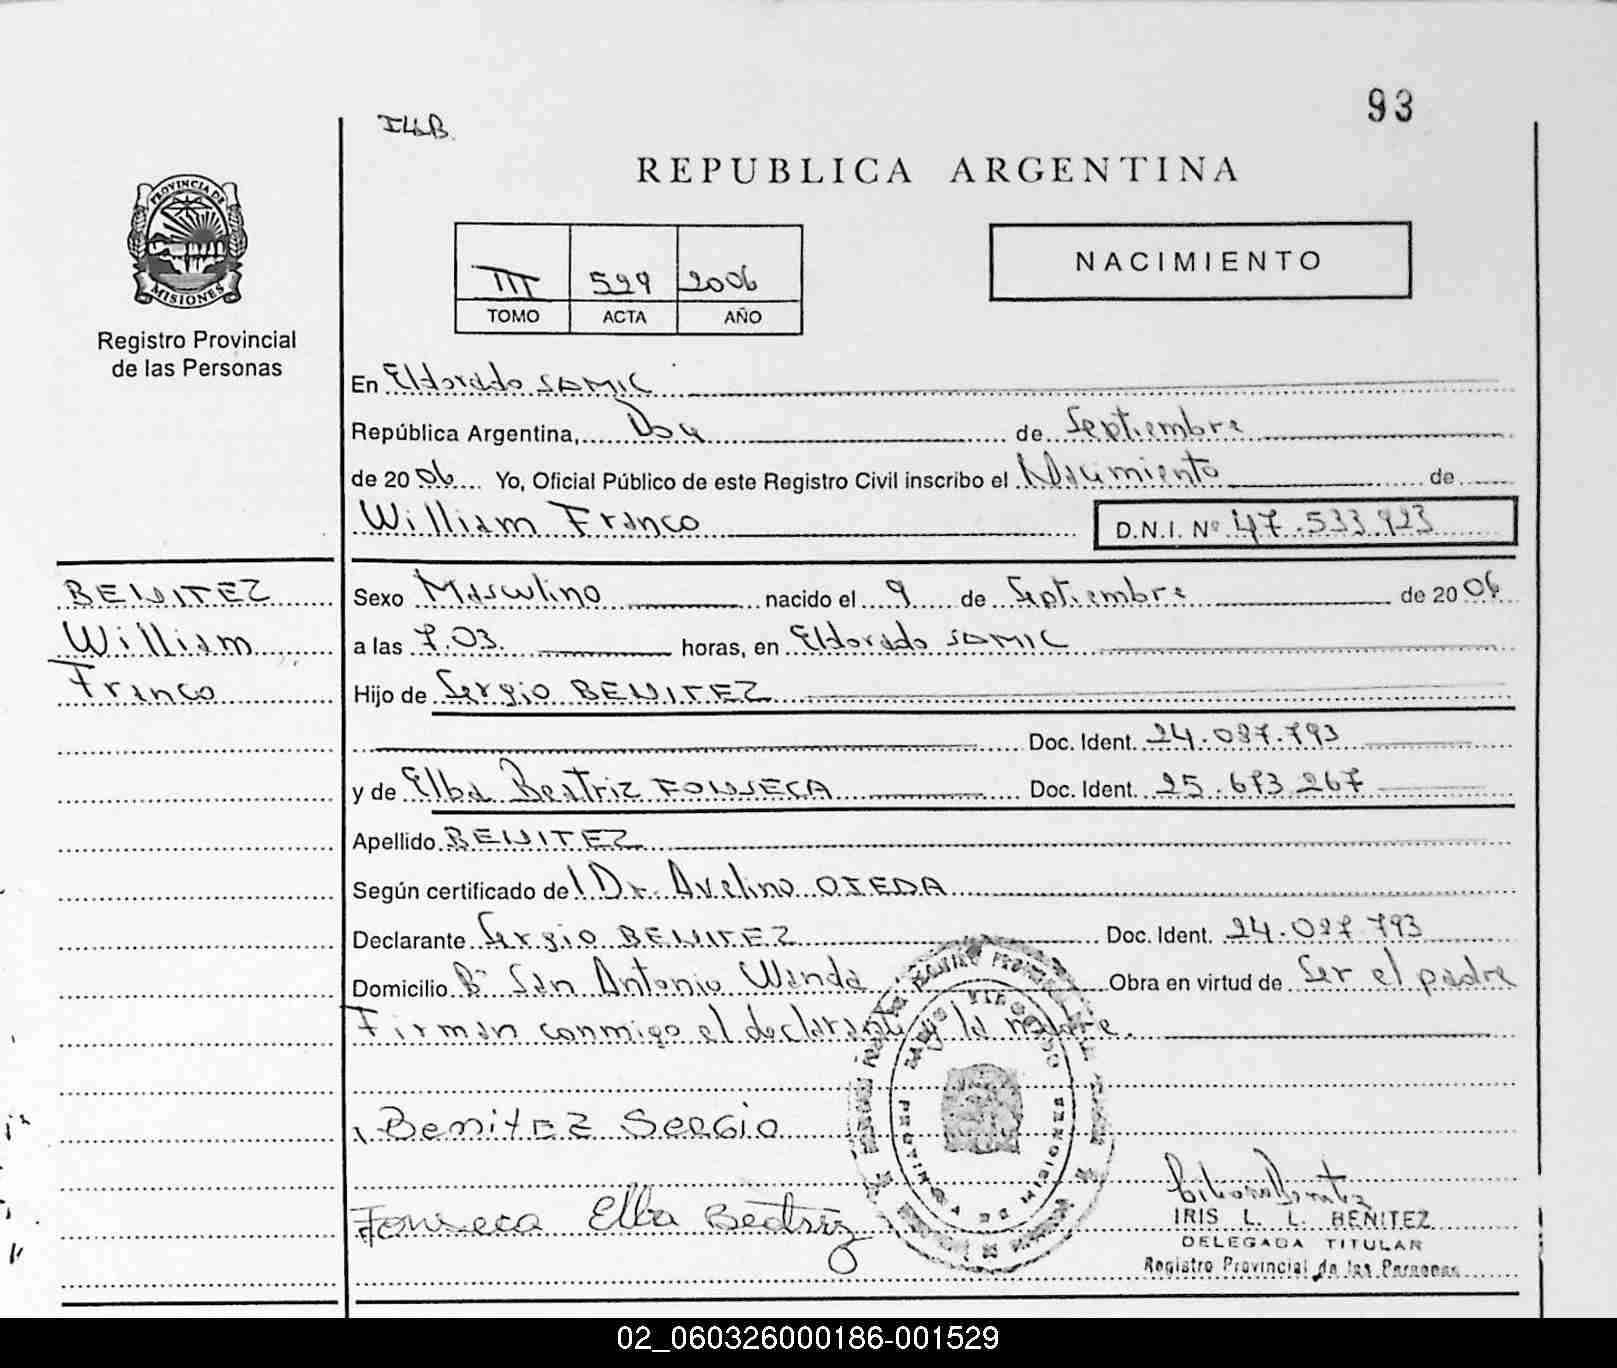 93
ILLB.
REPUBLICA ARGENTINA
PROVINCIA DE
MISIONES
Registro Provincial
de las Personas
III 529 2006
TOMO ACTA AÑO
NACIMIENTO
En Eldorado SAMIC
República Argentina, de Septiembre
de 2006 Yo, Oficial Público de este Registro Civil inscribo el Nacimiento de
William Franco D.N.I. Nº 47.533.923
BENITEZ
William
Franco
Sexo Masculino nacido el 9 de Septiembre de 2006
a las 7.03. horas, en Eldorado SAMIC
Hijo de Sergio BENITEZ
Doc. Ident. 24.087.793
y de Elba Beatriz FONSECA Doc. Ident. 25.673.267
Apellido BENITEZ
Según certificado del Dr. Avelino OJEDA
Declarante Sergio BENITEZ Doc. Ident. 24.087.793
Domicilio Bº San Antonio Wanda Obra en virtud de Ser el padre
Firman conmigo el declarante y la madre.
Benitez Sergio
Fonseca Elba Beatriz
IRIS L. L. BENITEZ
DELEGADA TITULAR
Registro Provincial de las Personas
02_060326000186-001529